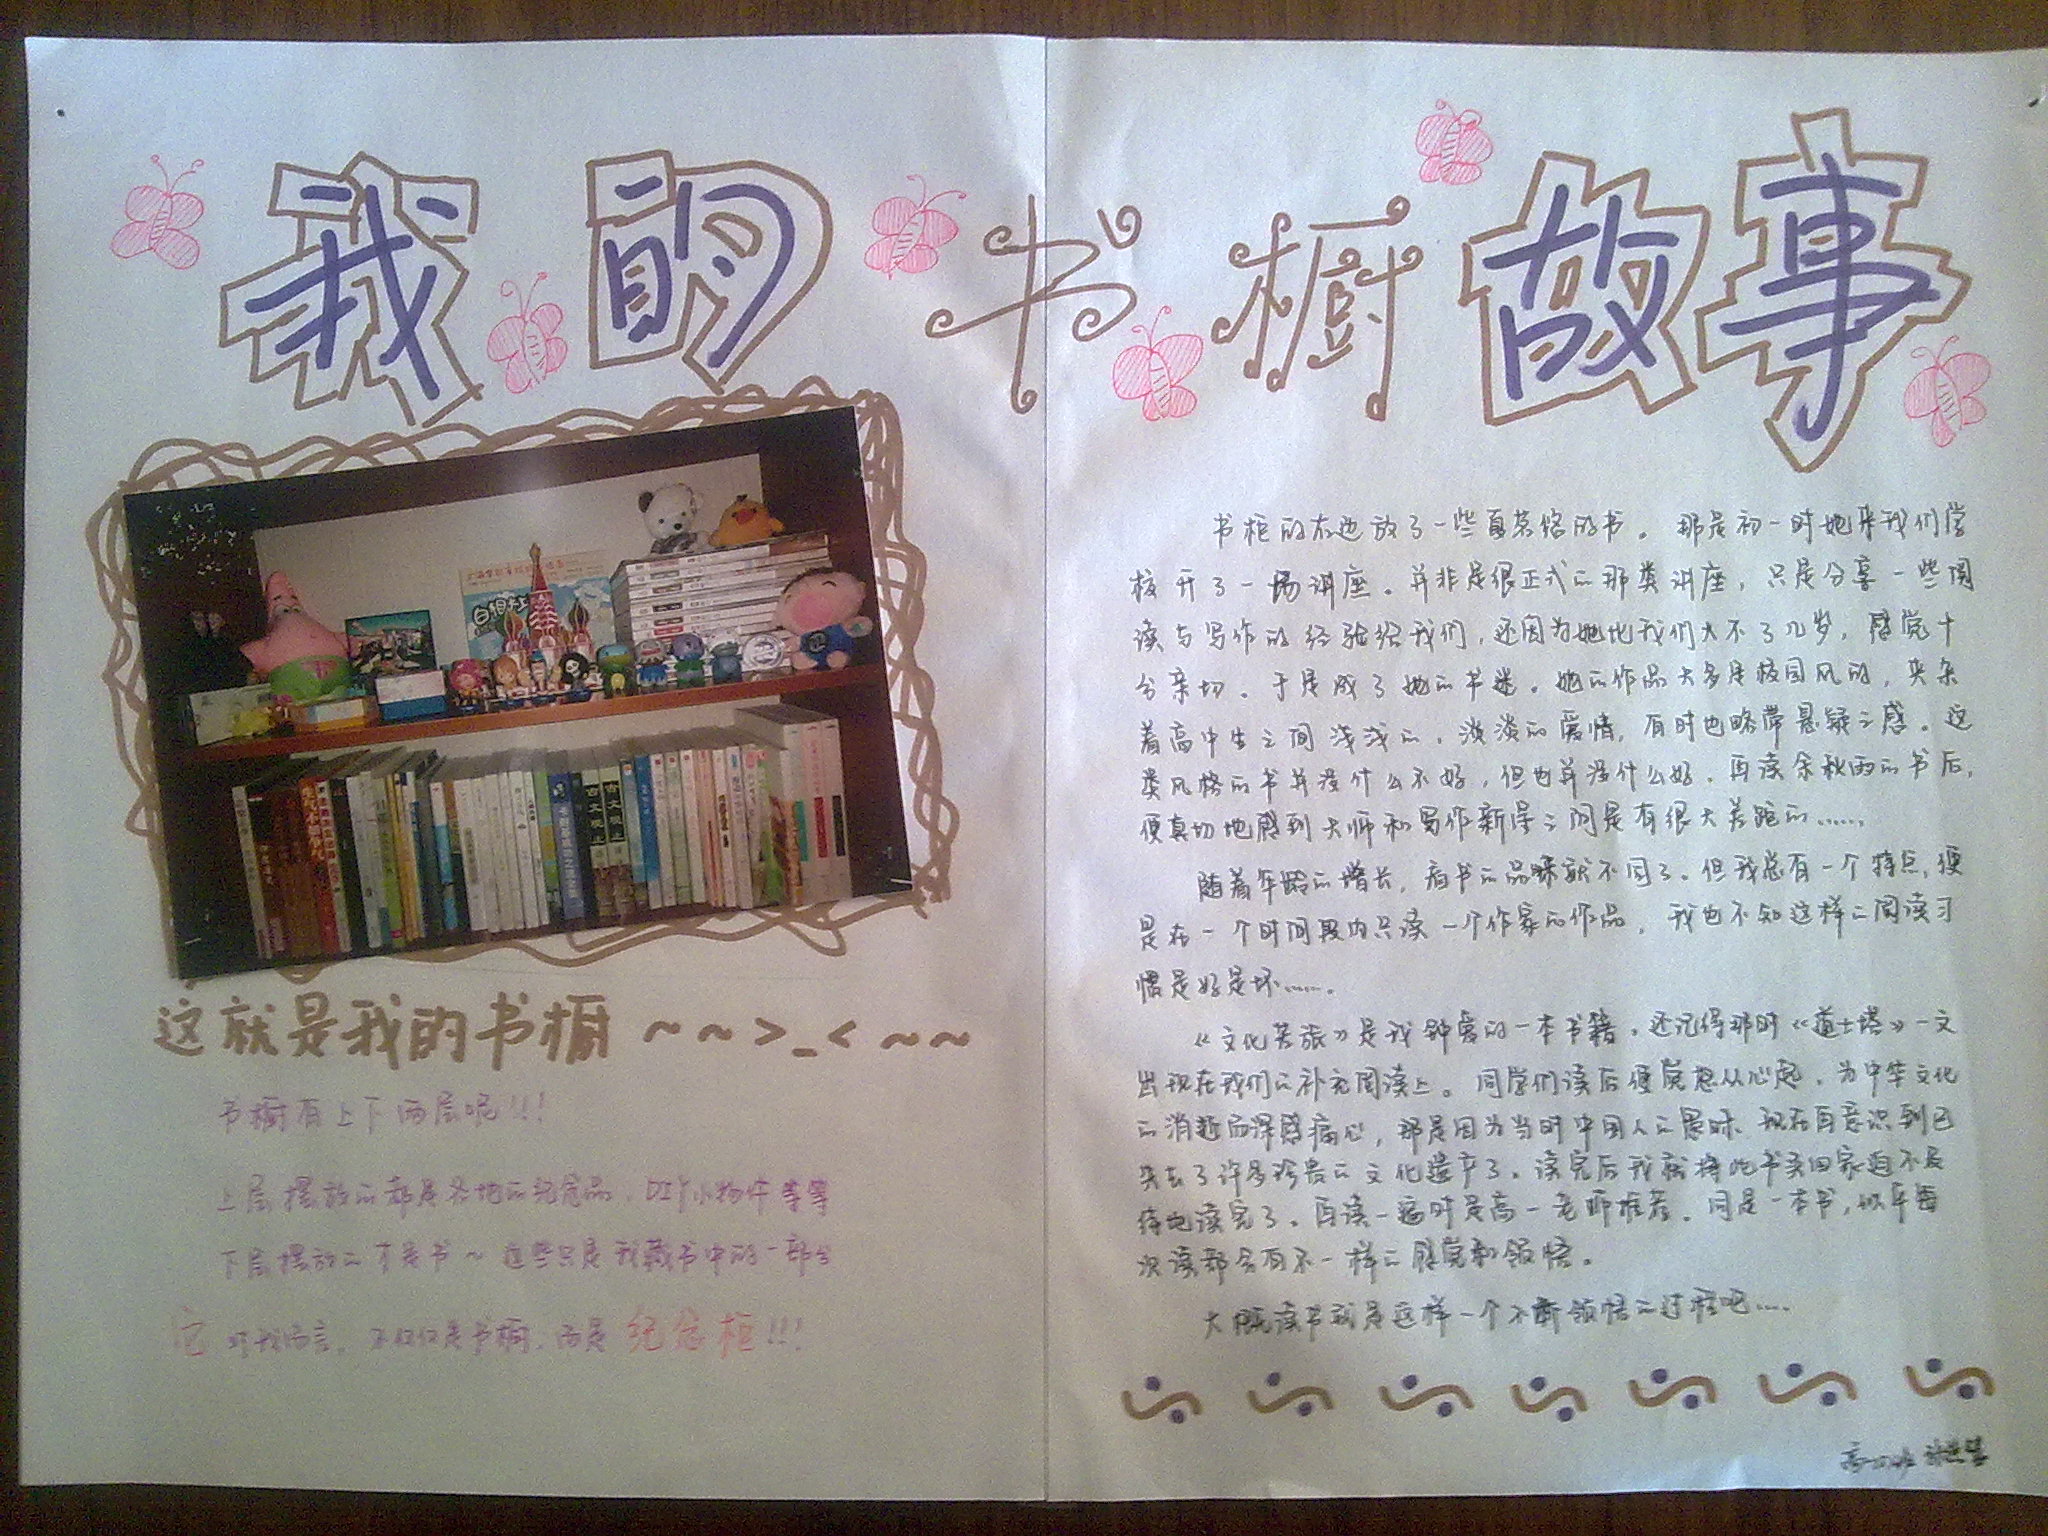 我的书橱故事
这就是我的书橱～～>_<～～
书橱有上下两层呢!!!
上层摆放的都是各地的纪念品，DIY小物件等等
下层摆放的才是书～这些只是我藏书中的一部分
它对我而言，不仅仅是书橱，而是纪念柜!!!
书柜的左边放了一些夏茗悠的书。那是初一时她来我们学
校开了一场讲座。并非是很正式的那类讲座，只是分享一些阅
读与写作的经验给我们，还因为她比我们大不了几岁，感觉十
分亲切。于是成了她的书迷。她的作品大多是校园风的，夹杂
着高中生之间浅浅的、淡淡的爱情，有时也略带悬疑之感。这
类风格的书并没什么不好，但也并没什么好。再读余秋雨的书后，
便真切地感到大师和写作新得之间是有很大差距的……
随着年龄的增长，看书的品味就不同了。但我总有一个特点，便
是在一个时间段内只读一个作家的作品，我也不知这样的阅读习
惯是好是坏……。
《文化苦旅》是我钟爱的一本书籍。还记得那时《道士塔》一文
出现在我们的补充阅读上。同学们读后便哀愁从心起，为中华文化
的消逝而深感痛心，那是因为当时中国人的愚昧、现在再意识到已
失去了许多珍贵的文化遗产了。读完后我就将此书买回家迫不及
待地读完了。再读一遍时是高一老师推荐。同是一本书，似乎每
次读都会有不一样的感觉和领悟。
大概读书就是这样一个不断领悟的过程吧……
白相
古文观止
古文观止